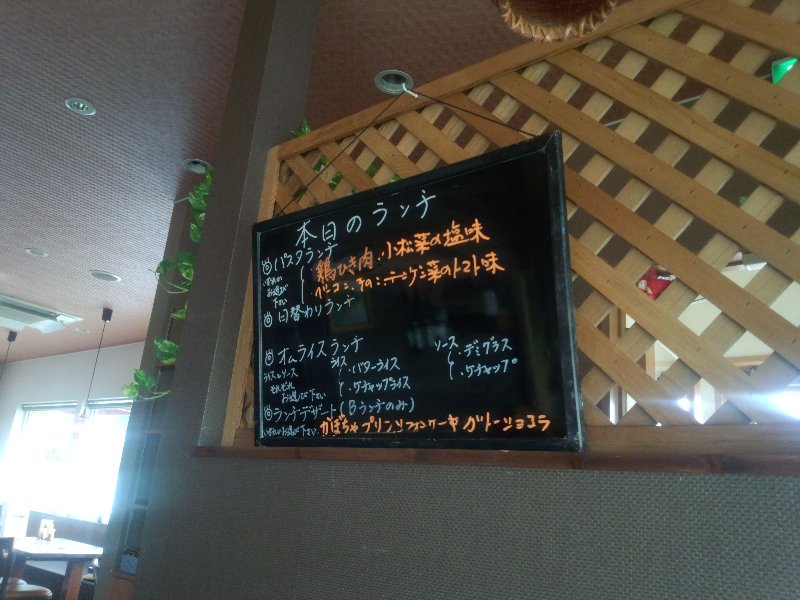 本日のランチ
◎パスタランチ
いずれか
お選び
下さい
鶏ひき肉、小松菜の塩味
ベーコン、きのこ、チンゲン菜のトマト味
◎日替わりランチ
◎オムライスランチ
ライスとソース
それぞれ
お選び下さい
ライス
・バターライス
・ケチャップライス
ソース
・デミグラス
・ケチャップ
◎ランチデザート(Bランチのみ)
いずれかお選び下さい
かぼちゃプリン シフォンケーキ ガトーショコラ